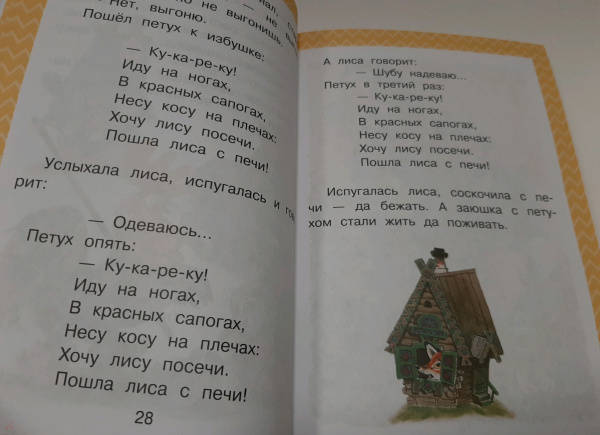 но не выгонишь.
Нет, выгоню. — не вы
Пошёл петух к избушке:
— Ку-ка-ре-ку!
Иду на ногах,
В красных сапогах,
Несу косу на плечах:
Хочу лису посечи.
Пошла лиса с печи!
Услыхала лиса, испугалась и гов
рит:
— Одеваюсь...
Петух опять:
— Ку-ка-ре-ку!
Иду на ногах,
В красных сапогах,
Несу косу на плечах:
Хочу лису посечи.
Пошла лиса с печи!
28
А лиса говорит:
— Шубу надеваю...
Петух в третий раз:
— Ку-ка-ре-ку!
Иду на ногах,
В красных сапогах,
Несу косу на плечах:
Хочу лису посечи.
Пошла лиса с печи!
Испугалась лиса, соскочила с пе-
чи — да бежать. А заюшка с пету-
хом стали жить да поживать.